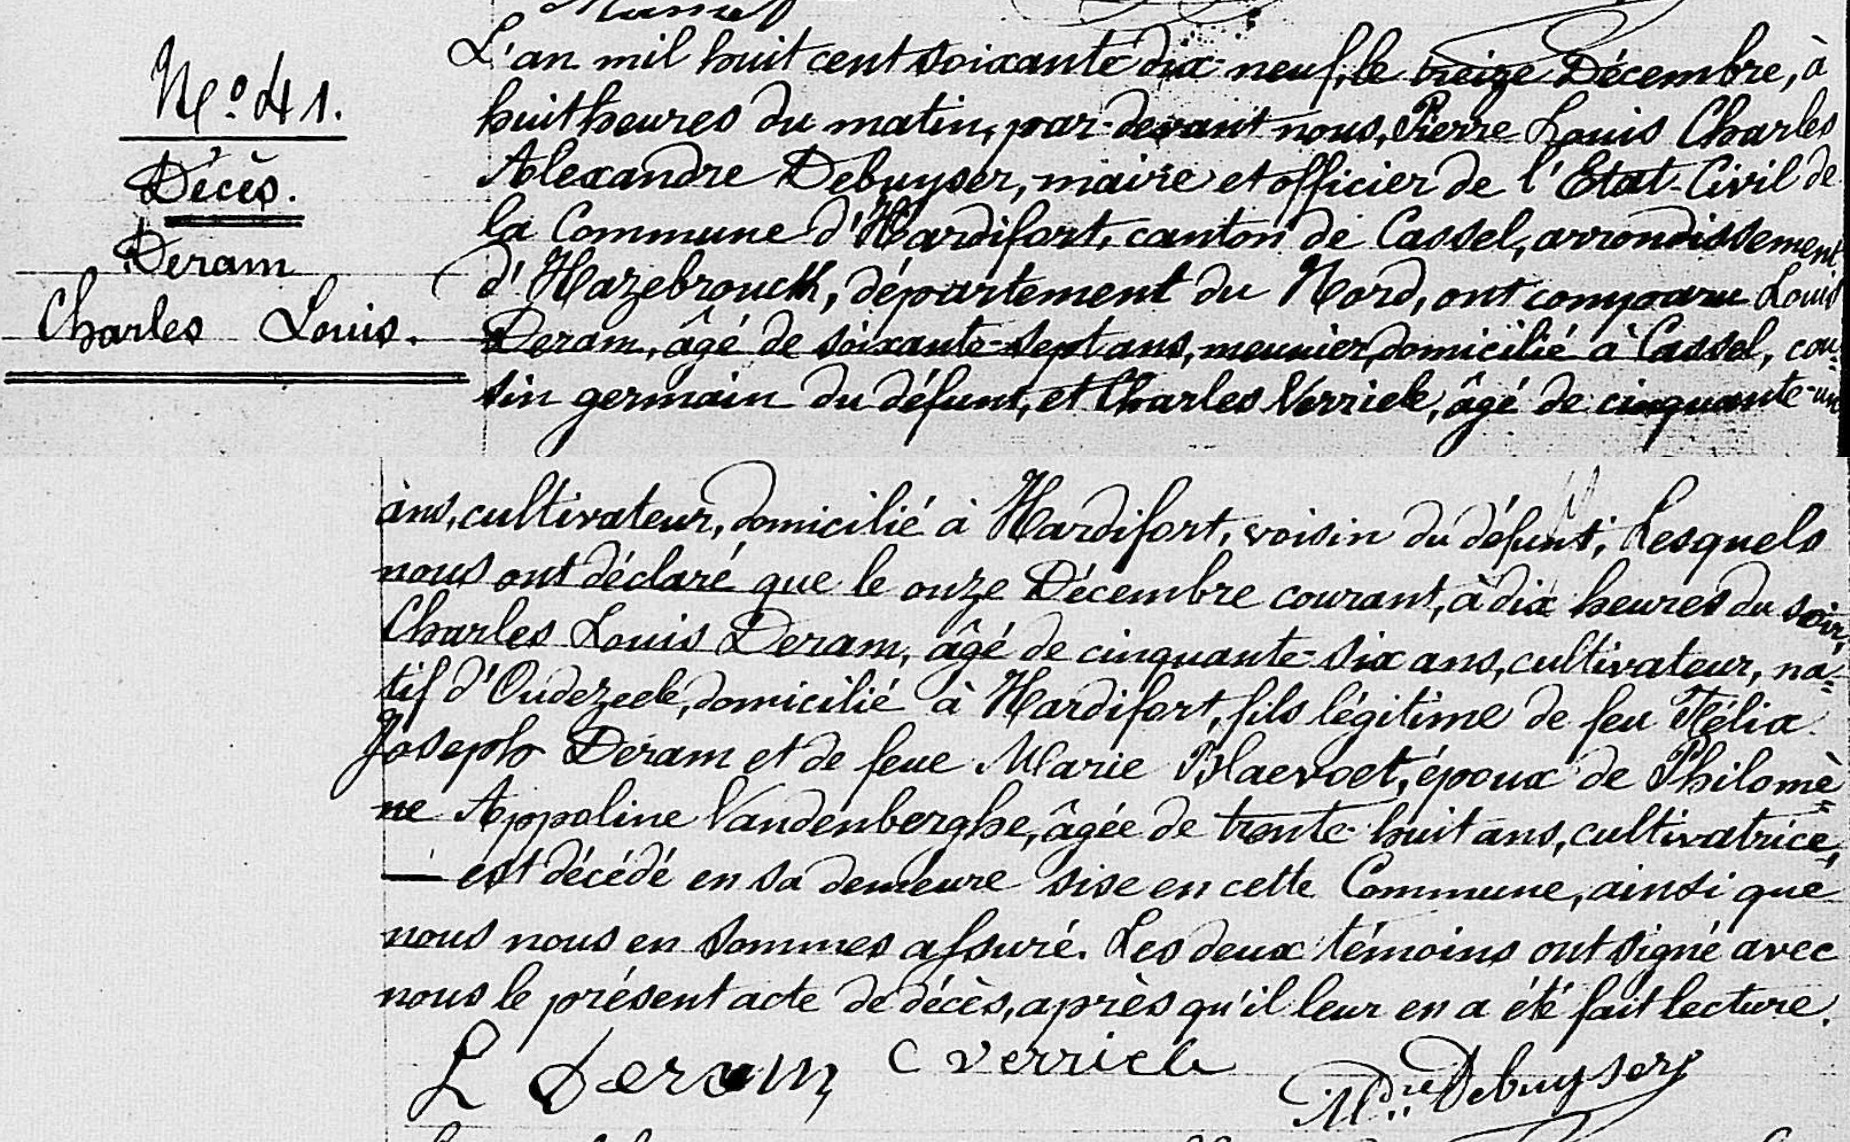 N.° 41.
Décès.
Deram
Charles Louis.
L'an mil huit cent soixante dix-neuf, le treize Décembre, à
huit heures du matin, par-devant nous, Pierre Louis Charles
Alexandre Debuyser, maire et officier de l'Etat-Civil de
la Commune d'Hardifort, canton de Cassel, arrondissement
d'Hazebrouck, département du Nord, ont comparu Louis
Deram, âgé de soixante-sept ans, meunier, domicilié à Cassel, cou-
sin germain du défunt, et Charles Verriele, âgé de cinquante-un
ans, cultivateur, domicilié à Hardifort, voisin du défunt; Lesquels
nous ont déclaré que le onze Décembre courant, à dix heures du soir,
Charles Louis Deram, âgé de cinquante-six ans, cultivateur, na=
tif d'Oudezeele, domicilié à Hardifort, fils légitime de feu Félix
Joseph Deram et de feue Marie Blaevoet, époux de Philomè=
ne Appoline Vandenberghe, âgée de trente-huit ans, cultivatrice,
— est décédé en sa demeure sise en cette Commune, ainsi que
nous nous en sommes assuré. Les deux témoins ont signé avec
nous le présent acte de décès, après qu'il leur en a été fait lecture.
L Deram C Verriele Debuyser